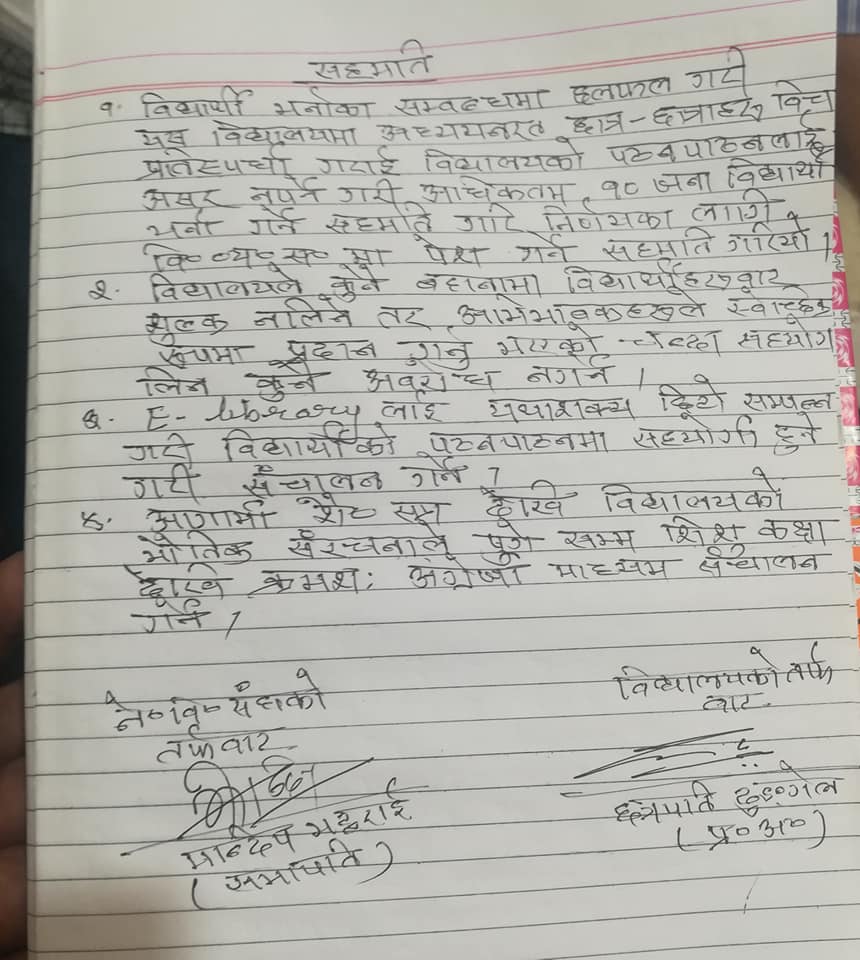 सहमति
१. विद्यार्थी भर्नाका सम्वन्धमा छलफल गरी
यस विद्यालयमा अध्ययनरत छात्र-छात्राहरु विच
प्रतिस्पर्धा गराई विद्यालयको पठनपाठनलाई
असर नपर्ने गरी अधिकतम १० जना विद्यार्थी
भर्ना गर्ने सहमति गरि निर्णयका लागी
वि॰व्य॰स॰ मा पेश गर्ने सहमति गरियो।
२. विद्यालयले कुनै बहानामा विद्यार्थीहरुवाट
शुल्क नलिने तर अभिभावकहरुले स्वेच्छिक
रूपमा प्रदान गर्नु भएको चन्दा सहयोग
लिन कुनै अवरोध नगर्ने।
३. E-library लाई यथाशक्य छिटो सम्पन्न
गरी विद्यार्थीको पठनपाठनमा सहयोगी हुने
गरी संचालन गर्ने।
४. आगामी शैक्ष सत्र देखि विद्यालयको
भौतिक संरचनाले पुगे सम्म शिशु कक्षा
देखि क्रमश: अंग्रेजी माध्यम संचालन
गर्ने।
ने॰वि॰संघको
तर्फवाट
भट्टराई
(सभापति)
विद्यालयको तर्फ
वाट
छत्रपति ढुङ्गेल
(प्र॰अ॰)